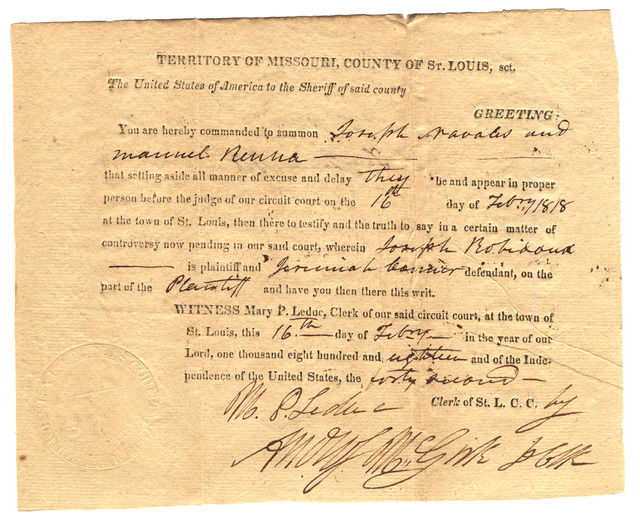 TERRITORY OF MISSOURI, COUNTY OF St. LOUIS, sct.
The United States of America to the Sheriff of said county
GREETING:
You are hereby commanded to summon Joseph Navales and
manuel
that setting aside all manner of excuse and delay they be and appear in proper
person before the judge of our circuit court on the 16th day of Febry 1818
at the town of St. Louis, then there to testify and the truth to say in a certain matter of
controversy now pending in our said court, wherein Joseph Robidoux
is plaintiff and Jeremiah defendant, on the
part of the Plaintiff and have you then there this writ.
WITNESS Mary P. Leduc, Clerk of our said circuit court, at the town of
St. Louis, this 16th day of Febry in the year of our
Lord, one thousand eight hundred and eighteen and of the Inde-
pendence of the United States, the forty second
M. P. Leduc Clerk of St. L. C. C. by
McGirk